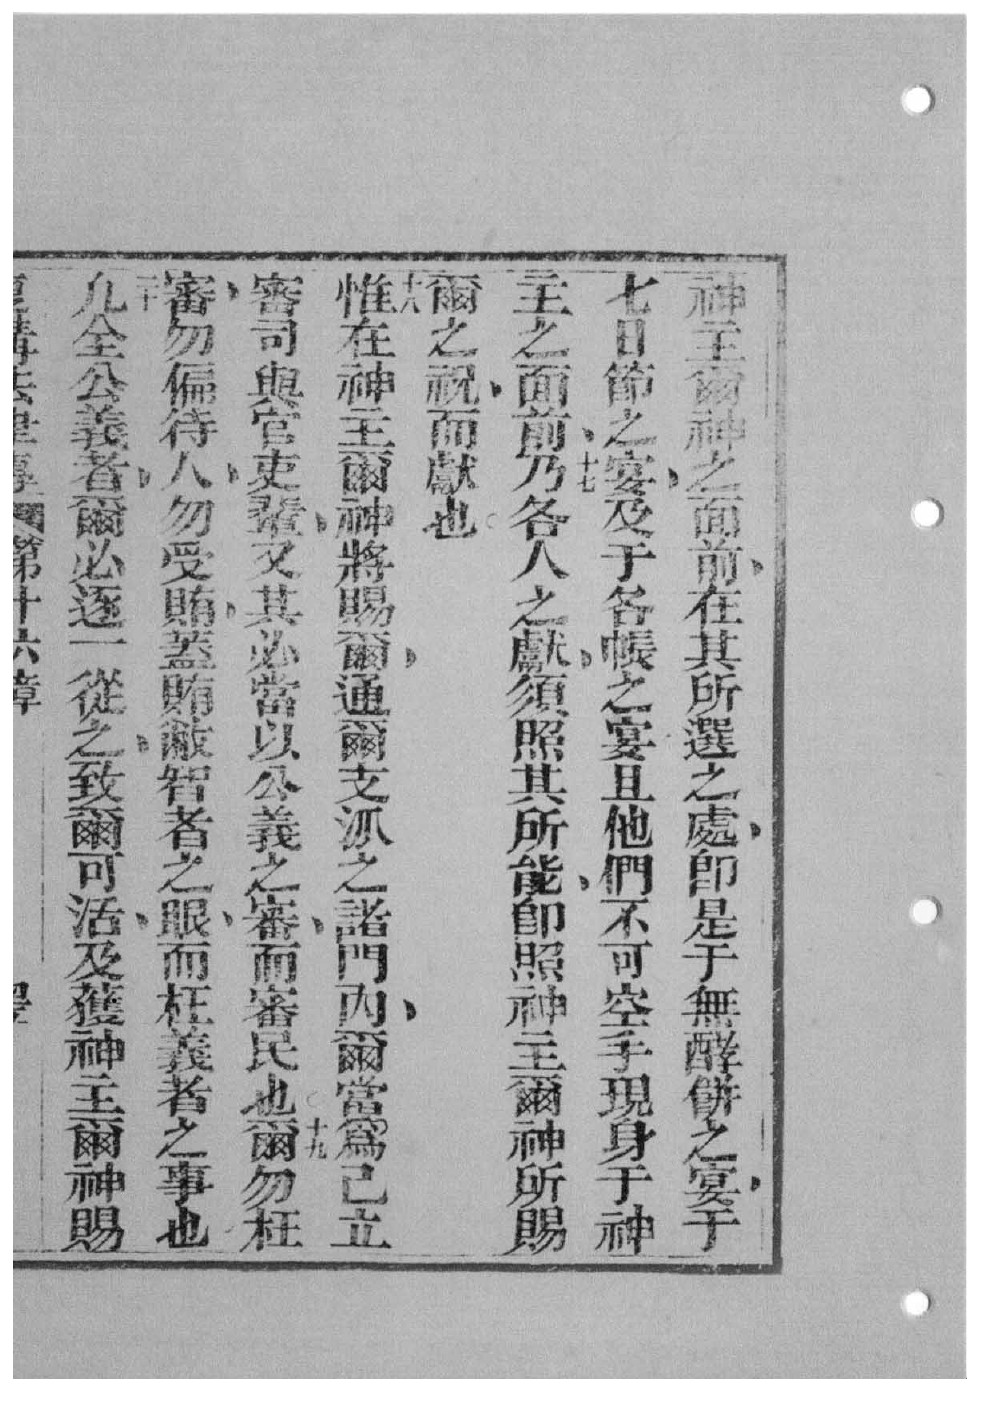 神主爾神之面前、在其所選之處、卽是于無酵餅之宴、于
七日節之宴、及于各帳之宴且他們不可空手現身于神
主之面前、十七乃各人之獻、須照其所能、卽照神主爾神所賜
爾之祝、而獻也○
十八惟在神主爾神將賜爾、通爾支派之諸門內、爾當爲己立
審司與官吏輩、又其必當以公義之審、而審民也○十九爾勿枉
審、勿偏待人、勿受賄、蓋賄敝智者之眼、而枉義者之事也
二十凡全公義者、爾必逐一從之、致爾可活、及獲神主爾神賜
第十六章